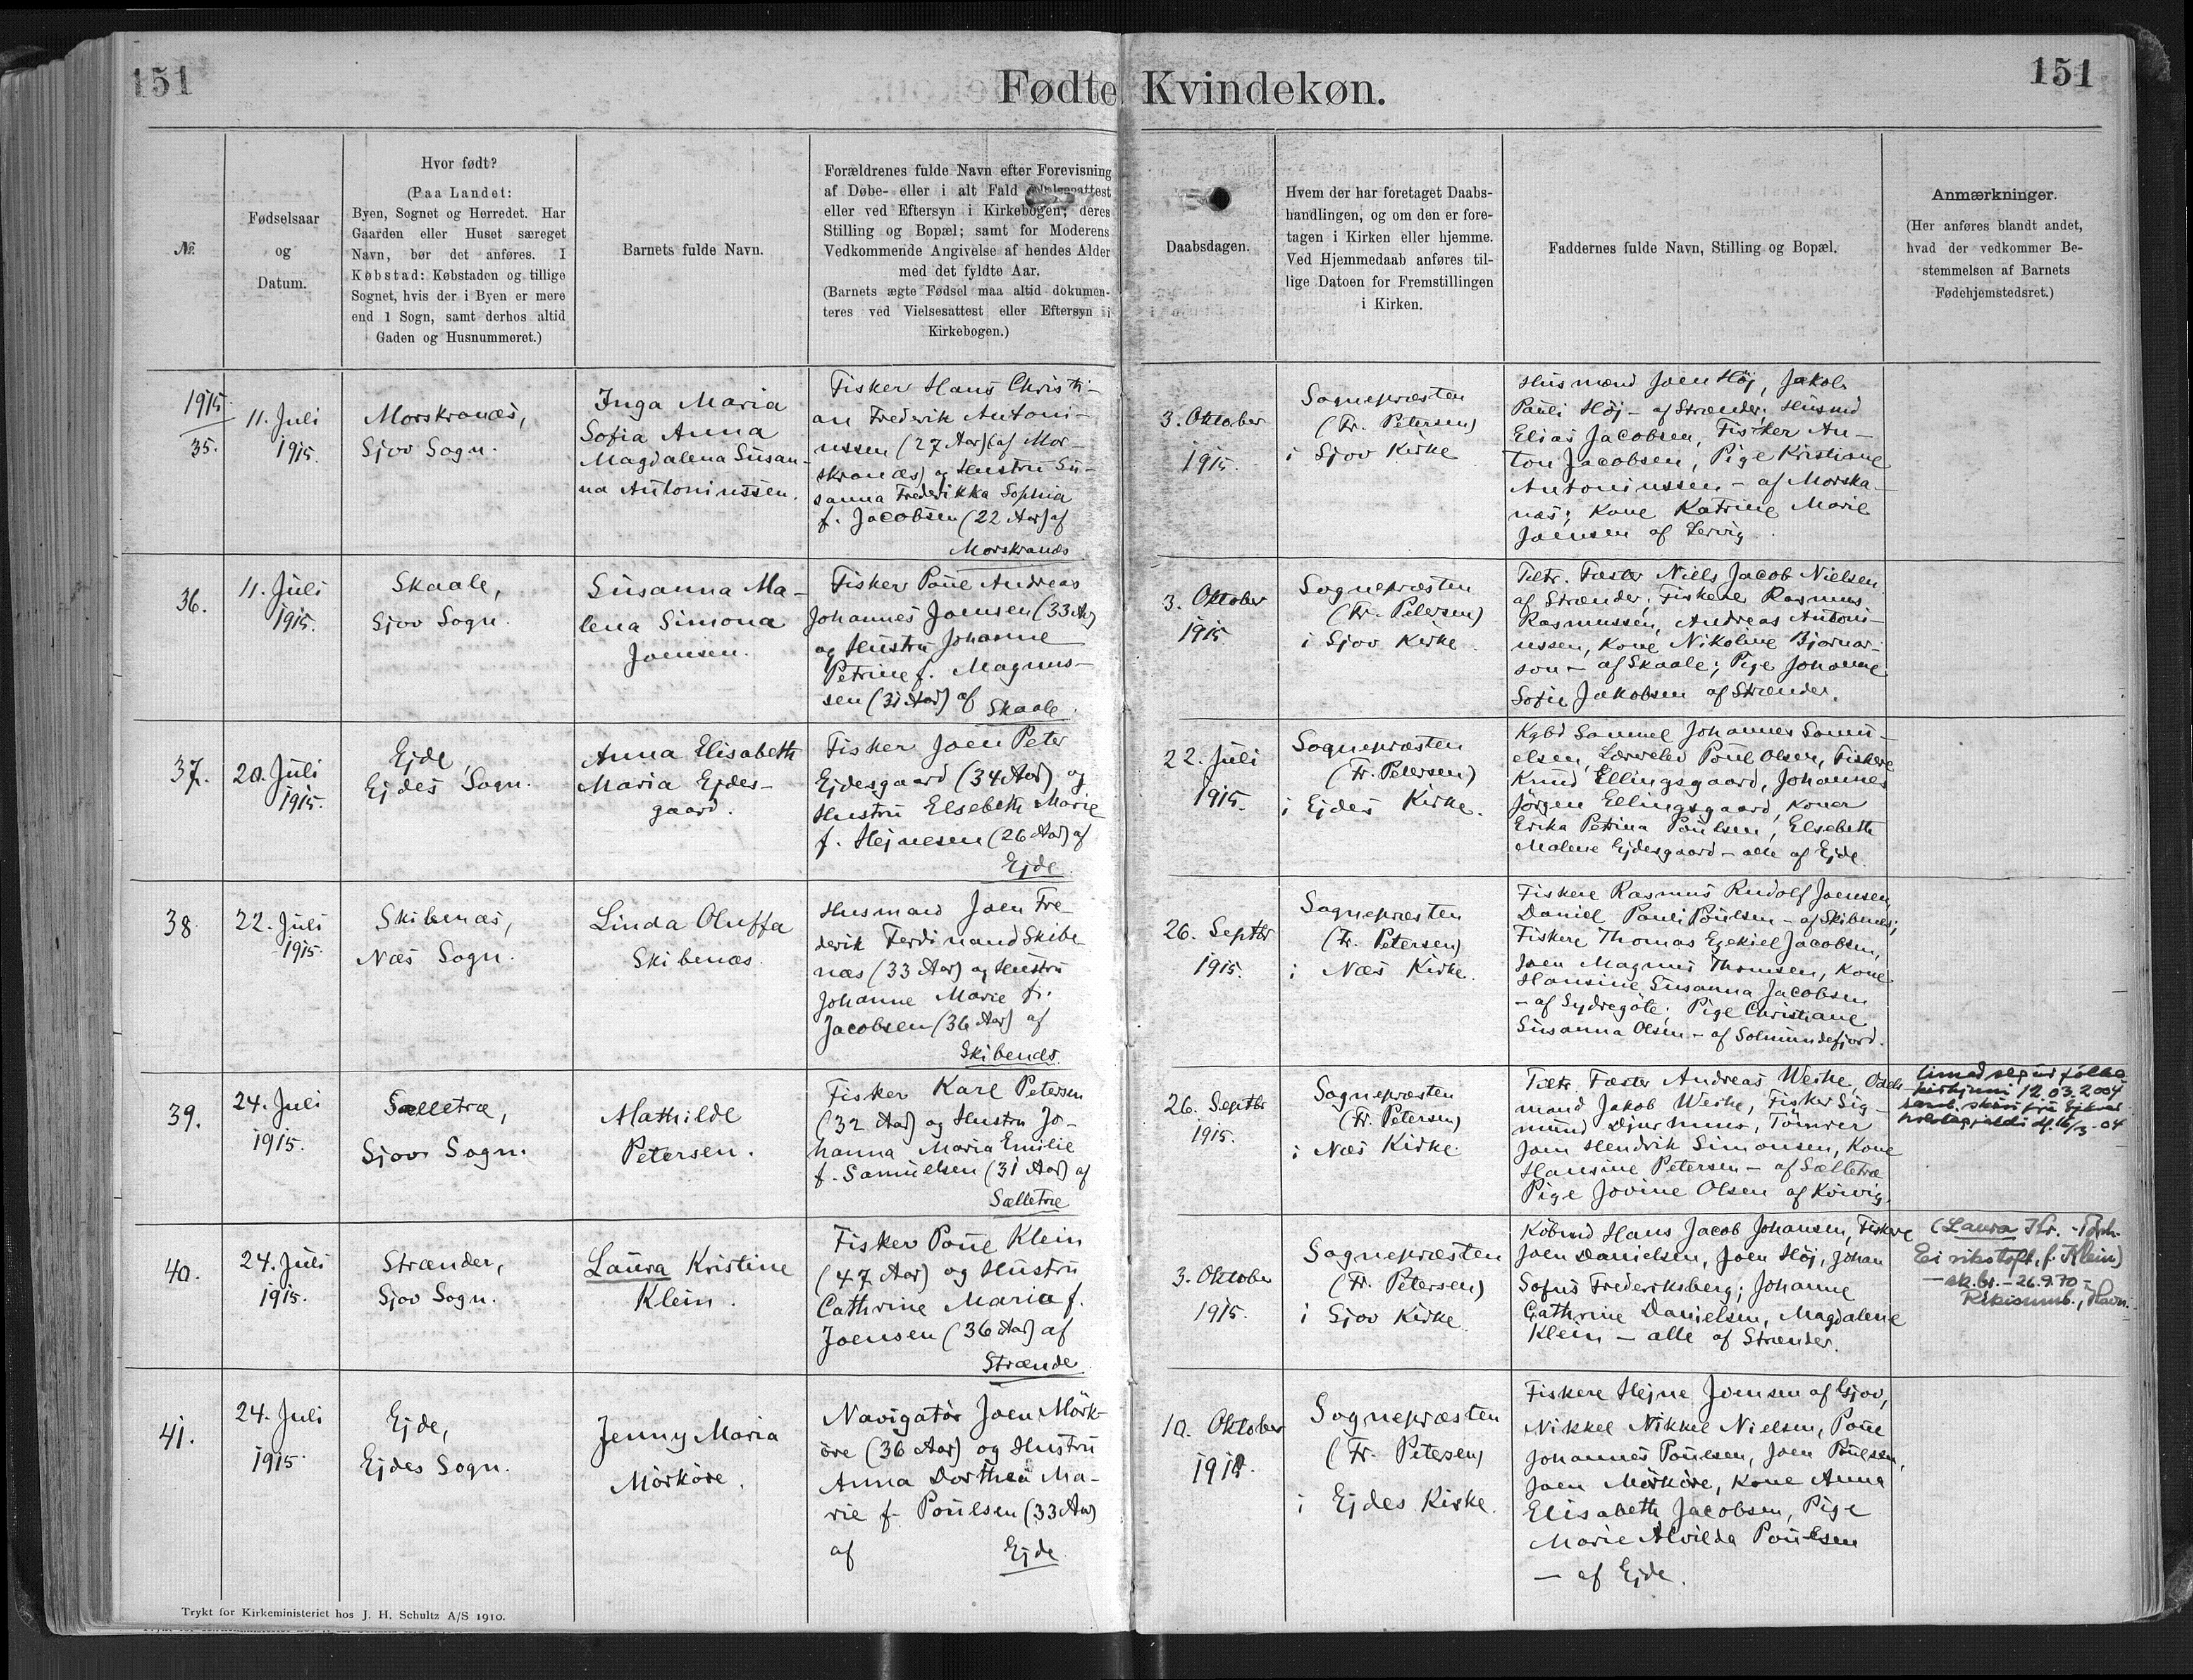 151
Fødte Kvindekøn.
151
№
Fødselsaar
og
Datum.
Hvor født?
(Paa Landet:
Byen, Sognet og Herredet. Har
Gaarden eller Huset særeget
Navn, bør det anføres. I
Købstad: Købstaden og tillige
Sognet, hvis der i Byen er mere
end 1 Sogn, samt derhos altid
Gaden og Husnummeret.)
Barnets fulde Navn.
Forældrenes fulde Navn efter Forevisning
af Døbe- eller i alt Fald
eller ved Eftersyn i Kirkebogen; deres
Stilling og Bopæl; samt for Moderens
Vedkommende Angivelse af hendes Alder
med det fyldte Aar.
(Barnets ægte Fødsel maa altid dokumen-
teres ved Vielsesattest eller Eftersyn i
Kirkebogen.)
Daabsdagen.
Hvem der har foretaget Daabs-
handlingen, og om den er fore-
tagen i Kirken eller hjemme.
Ved Hjemmedaab anføres til-
lige Datoen for Fremstillingen
i Kirken.
Faddernes fulde Navn, Stilling og Bopæl.
Anmærkninger.
(Her anføres blandt andet,
hvad der vedkommer Be-
stemmelsen af Barnets
Fødehjemstedsret.)
1915
35.
11. Juli
1915.
Morskranæs,
Sjov Sogn.
Inga Maria
Sofia Anna
Magdalena Susan-
na Antoniussen.
Fisker Hans Christi-
an Frederik Antoni-
ussen (27 Aar) (af Mor-
skranæs) og Hustru Su-
sanna Frederikka Sophia
f. Jacobsen (22 Aar) af
Morskranæs
3. Oktober
1915.
Sognepræsten
(Fr. Petersen)
i Sjov Kirke
Husmænd Joen Høj, Jakob
Pauli Høj - af Strænder; Husmd
Elias Jacobsen, Fisker An-
ton Jacobsen, Pige Kristiane
Antoniussen - af Morska-
næs; Kone Katrine Marie
Joensen af Lervig.
36.
11. Juli
1915.
Skaale,
Sjov Sogn.
Susanna Ma-
lena Simona
Joensen.
Fisker Poul Andreas
Johannes Joensen (33 Aar)
og Hustru Johanne
Petrine f. Magnus-
sen (31 Aar) af Skaale.
3. Oktober
1915
Sognepræsten
(Fr. Petersen)
i Sjov Kirke.
Fæster Niels Jacob Nielsen
af Strænder; Fiskere Rasmus
Rasmussen, Andreas Antoni-
ussen, Kone Nikoline Bjornar-
son - af Skaale; Pige Johanne
Sofie Jakobsen af Strænder.
37.
20. Juli
1915.
Ejde,
Ejdes Sogn.
Anna Elisabeth
Maria Ejdes-
gaard.
Fisker Joen Peter
Ejdesgaard (34 Aar) og
Hustru Elsebeth Marie
f. Hejnesen (26 Aar) af
Ejde.
22. Juli
1915.
Sognepræsten
(Fr. Petersen)
i Ejdes Kirke.
Kgbd Samuel Johannes Samu-
elsen, Poul Olsen, Fiskere
Knud Ellingsgaard, Johannes
Jörgen Ellingsgaard, Koner
Erika Petrina Poulsen, Elsebeth
Malene Ejdesgaard - alle af Ejde.
38.
22. Juli
1915.
Skibenæs,
Næs Sogn.
Linda Oluffa
Skibenæs.
Husmand Joen Fre-
derik Ferdinand Skibe-
næs (33 Aar) og Hustru
Johanne Marie f.
Jacobsen (36 Aar) af
Skibenæs.
26. Septbr
1915.
Sognepræsten
(Fr. Petersen)
i Næs Kirke.
Fiskere Rasmus Rudolf Joensen,
Daniel Pauli Poulsen - af Skibenæs;
Fiskere Thomas Ezekiel Jacobsen,
Joen Magnus Thomsen, Kone
Hansine Susanna Jacobsen
- af Sydregöte; Pige Christiane
Susanna Olsen - af Solmundefjord.
39.
24. Juli
1915.
Sælletræ,
Sjov Sogn.
Mathilde
Petersen.
Fisker Karl Petersen
(32 Aar) og Hustru Jo-
hanna Maria Emilie
f. Samuelsen (31 Aar) af
Sælletræ
26. Septbr
1915.
Sognepræsten
(Fr. Petersen)
i Næs Kirke.
Fæster Andreas Weihe, Odels-
mand Jakob Weihe, Fisker Sig-
mund Djurhuus, Tömrer
Joen Hendrik Simonsen, Kone
Hansine Petersen - af Sælletræ
Pige Jovine Olsen af Kvivig.
úr fólka-
kirkjuni 12.03.2004
40.
24. Juli
1915.
Strænder,
Sjov Sogn.
Laura Kristine
Klein.
Fisker Poul Klein
(47 Aar) og Hustru
Cathrine Maria f.
Joensen (36 Aar) af
Strænder.
3. Oktober
1915.
Sognepræsten
(Fr. Petersen)
i Sjov Kirke.
Köbmd Hans Jacob Johansen, Fiskere
Joen Danielsen, Joen Höj, Johan
Sofus Frederiksberg; Johanne
Cathrine Danielsen, Magdalene
Klein - alle af Strænder.
(Laura Kr.
Eirikstoft, f. Klein)
- sk.br. - 26.9.70 -
Ríkisumb., Havn.
41.
24. Juli
1915.
Ejde,
Ejdes Sogn.
Jenny Maria
Mörköre.
Navigatör Joen Mörk-
öre (36 Aar) og Hustru
Anna Dorthea Ma-
rie f. Poulsen (33 Aar)
af Ejde.
10. Oktober
1915.
Sognepræsten
(Fr. Petersen)
i Ejdes Kirke.
Fiskere Hejne Joensen af Gjov,
Nikkel Nikkel Nielsen, Poul
Johannes Poulsen, Joen Poulsen,
Joen Mörköre, Kone Anna
Elisabeth Jacobsen, Pige
Marie Alvilda Poulsen
- af Ejde.
Trykt for Kirkeministeriet hos J. H. Schultz A/S 1910.